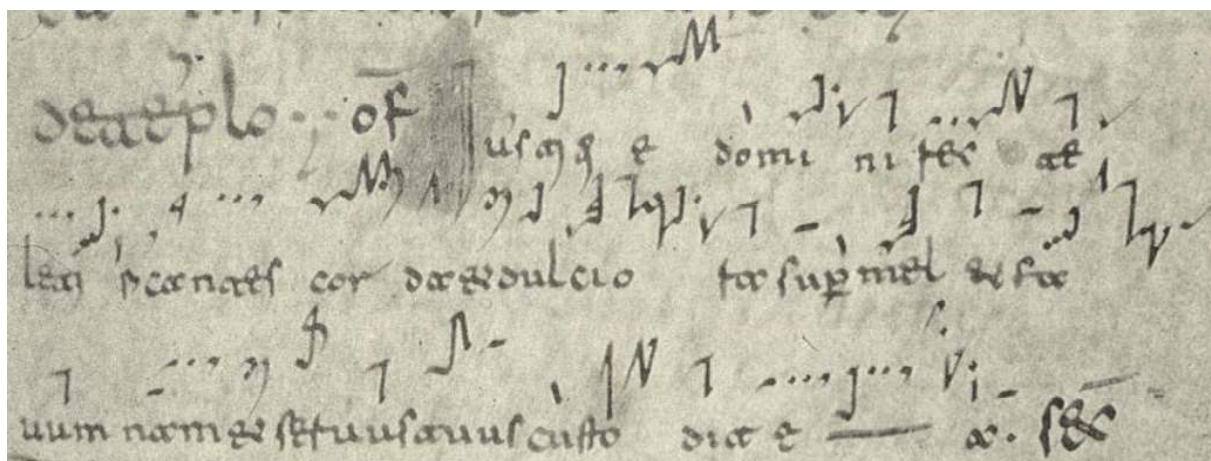 de teplo of Iustiti e domi ni rec te
leti ficantes cor da et dulcio ra sup mel et fa
uum nam et seruus tuus custo diet e a. sec